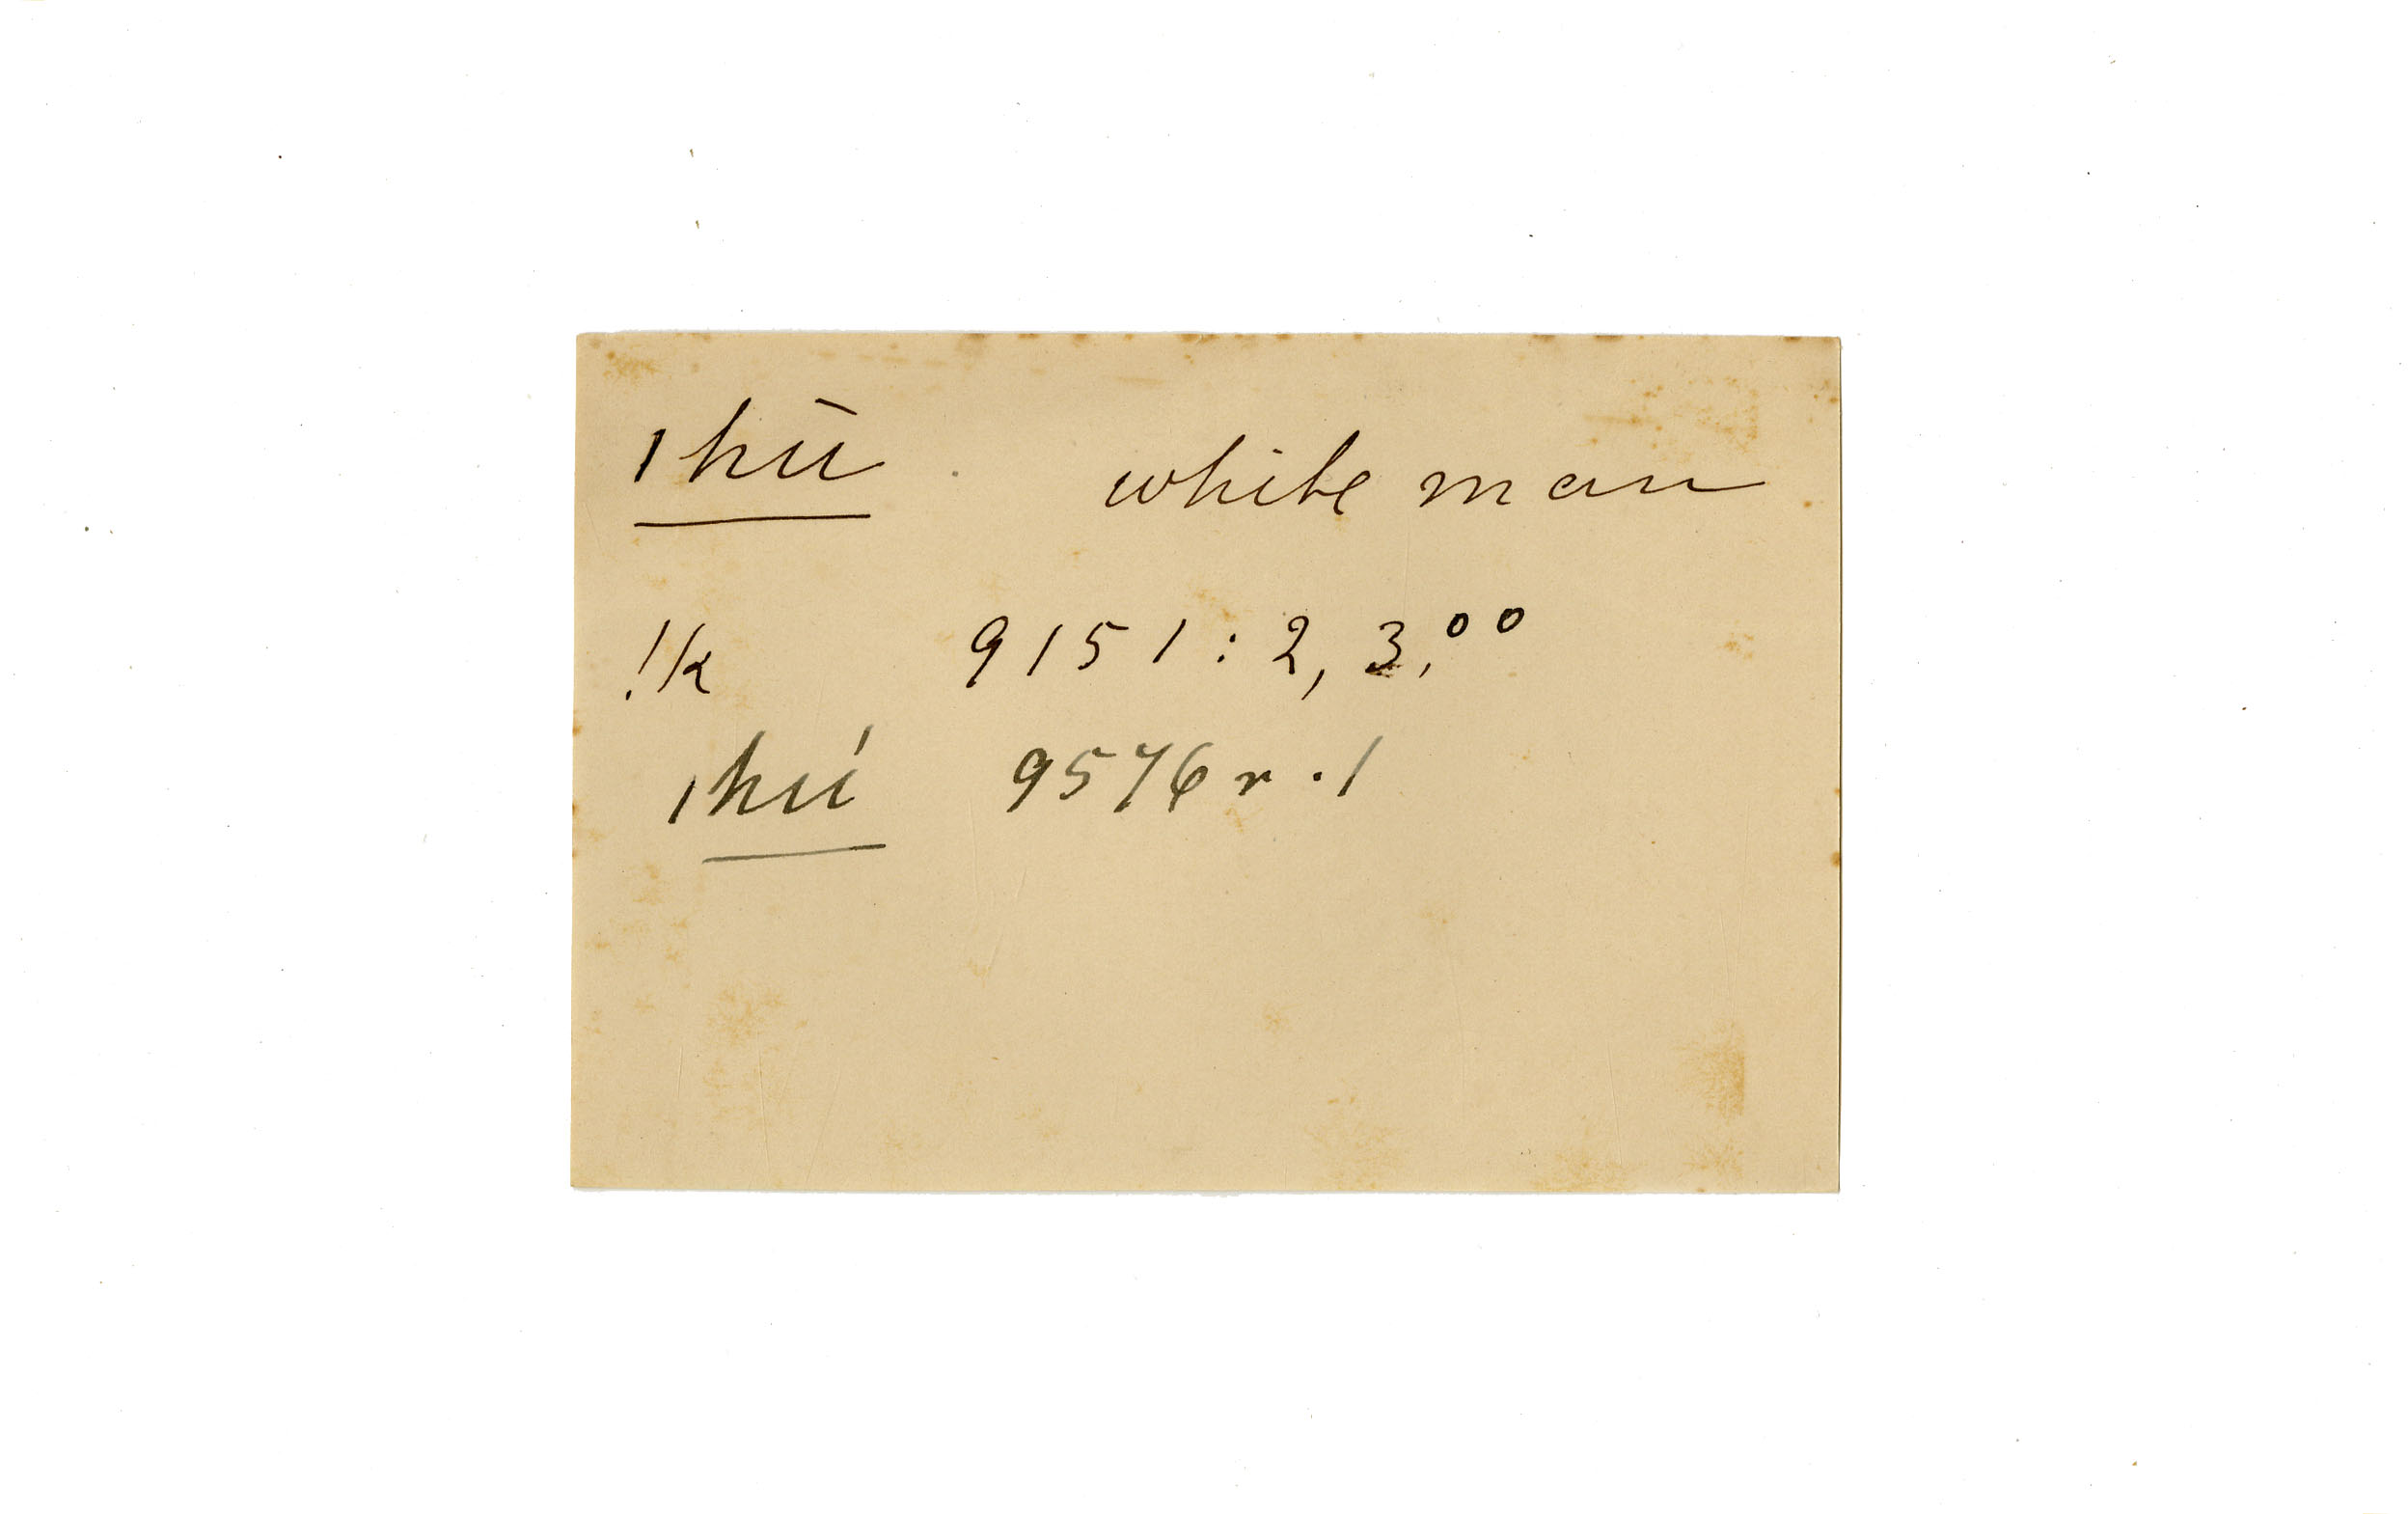 ǀhū white man
!k 9151:2, 3,⁰⁰
ǀhú 9576 r. 1